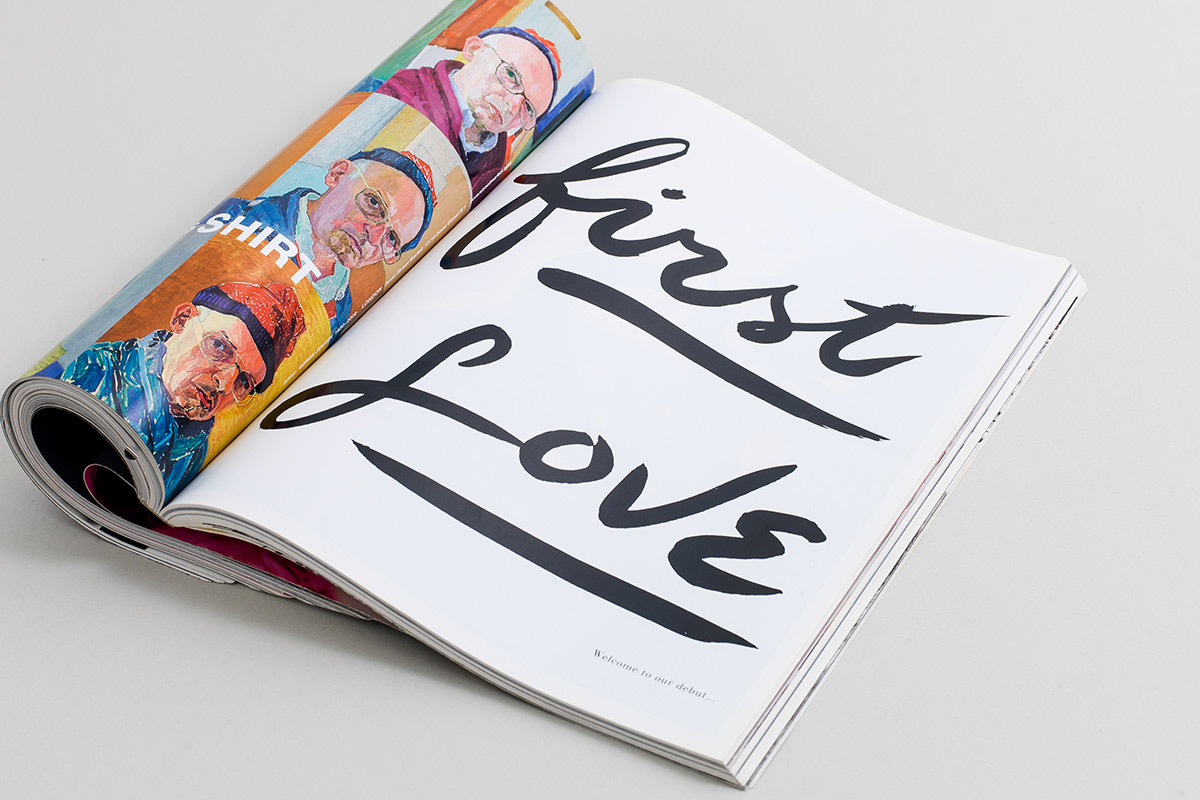 SHIRT
LONDON
first
Love
Welcome to our debut...